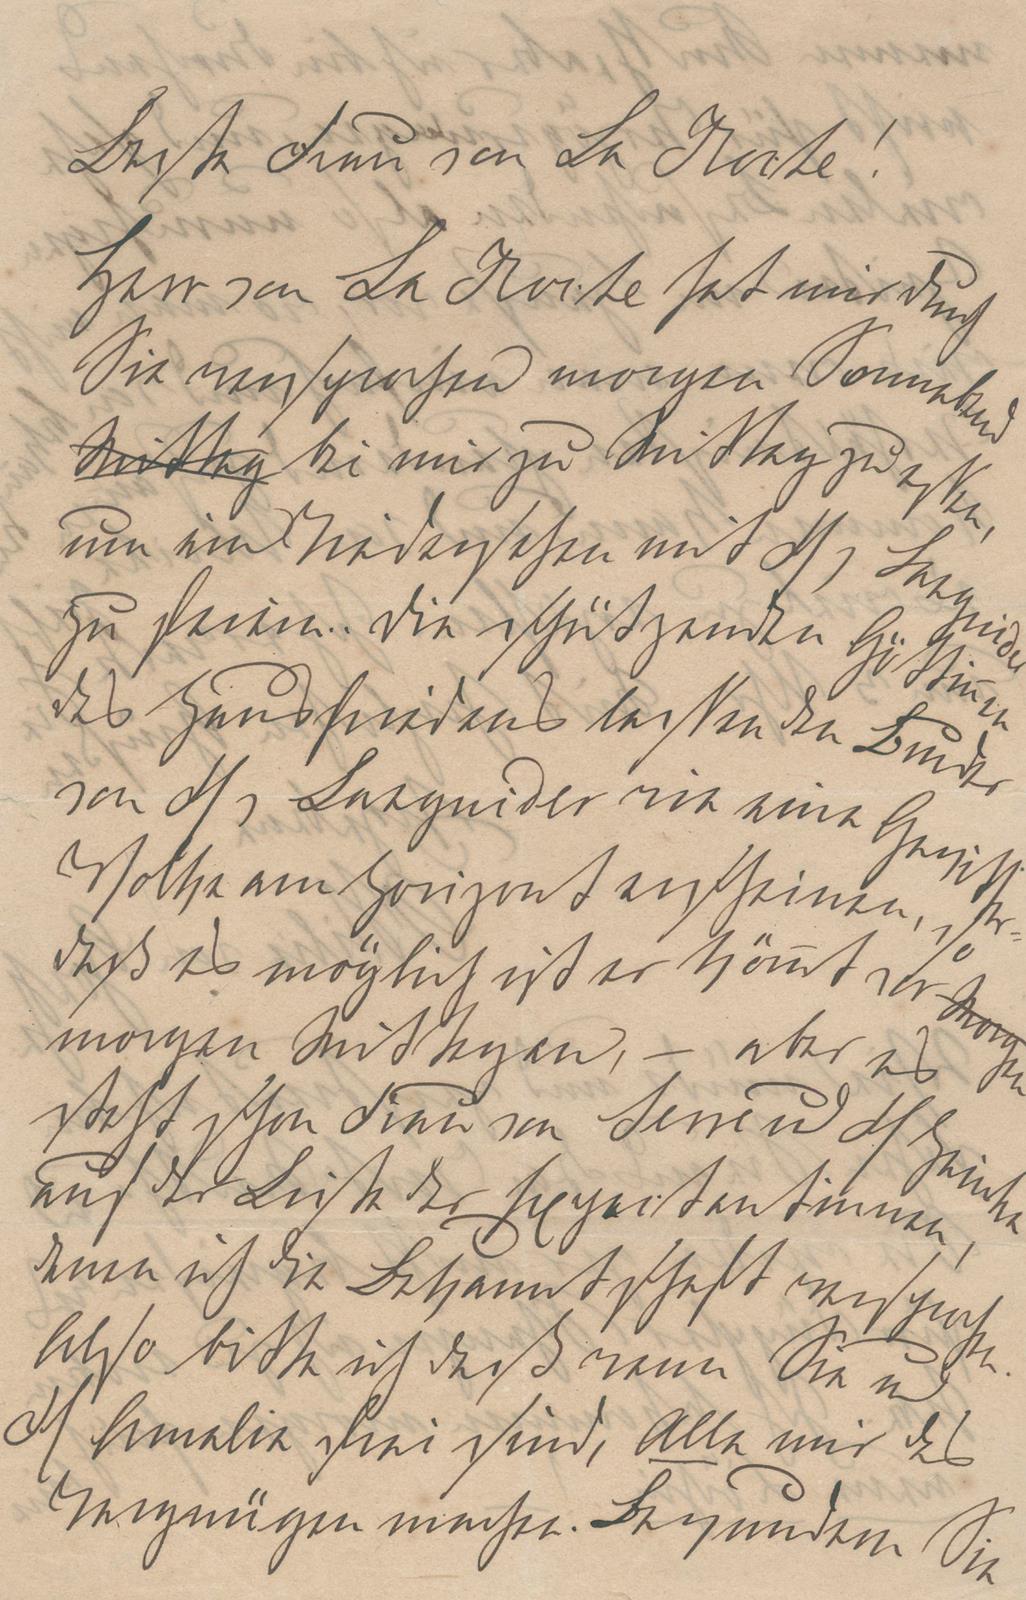 Beste Frau von La Roche!
Herr von La Roche hat mir durch
Sie versprochen morgen Sonnabend
Mittag bei mir zu Mittag zu essen,
um ein Wiedersehen mit H
zu feiern.. die schützenden Göttinen
des Hausfriedens lassen den Bruder
von wie eine Gewitter-
Wolke am Horizont erscheinen, so
daß es möglich ist er kömt vor morgen
morgen Mittagen, – aber es
steht schon Frau von und
auf der Liste der Expectantinnen,
denen ich die Bekanntschaft versprochen.
Also bitte ich daß wenn Sie und
Amalie frei sind, Alle mir das
Vergnügen machen. Sie